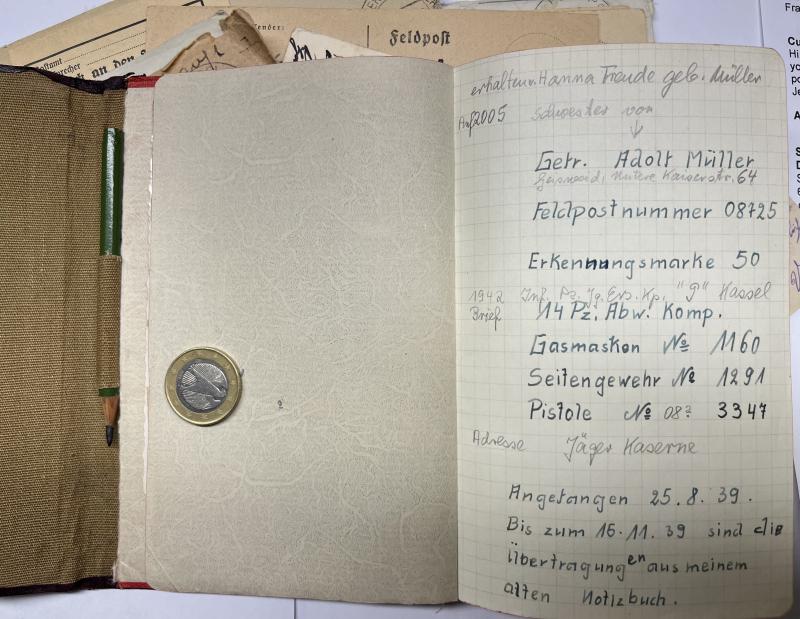 Postamt
Feldpost
erhalten v. Hanna Freude geb. Müller
Aug 2005 Schwester von
↓
Getr. Adolf Müller
Geisweid, Untere Kaiserstr. 64
Feldpostnummer 08725
Erkennungsmarke 50
1942 Inf. Pz. Jg. Ers. Kp. "9" Kassel
Brief 14 Pz. Abw. Komp.
Gasmasken № 1160
Seitengewehr № 1291
Pistole № 08? 3347
Adresse Jäger Kaserne
Angefangen 25.8.39.
Bis zum 15.11.39 sind die
Übertragungen aus meinem
alten Notizbuch.